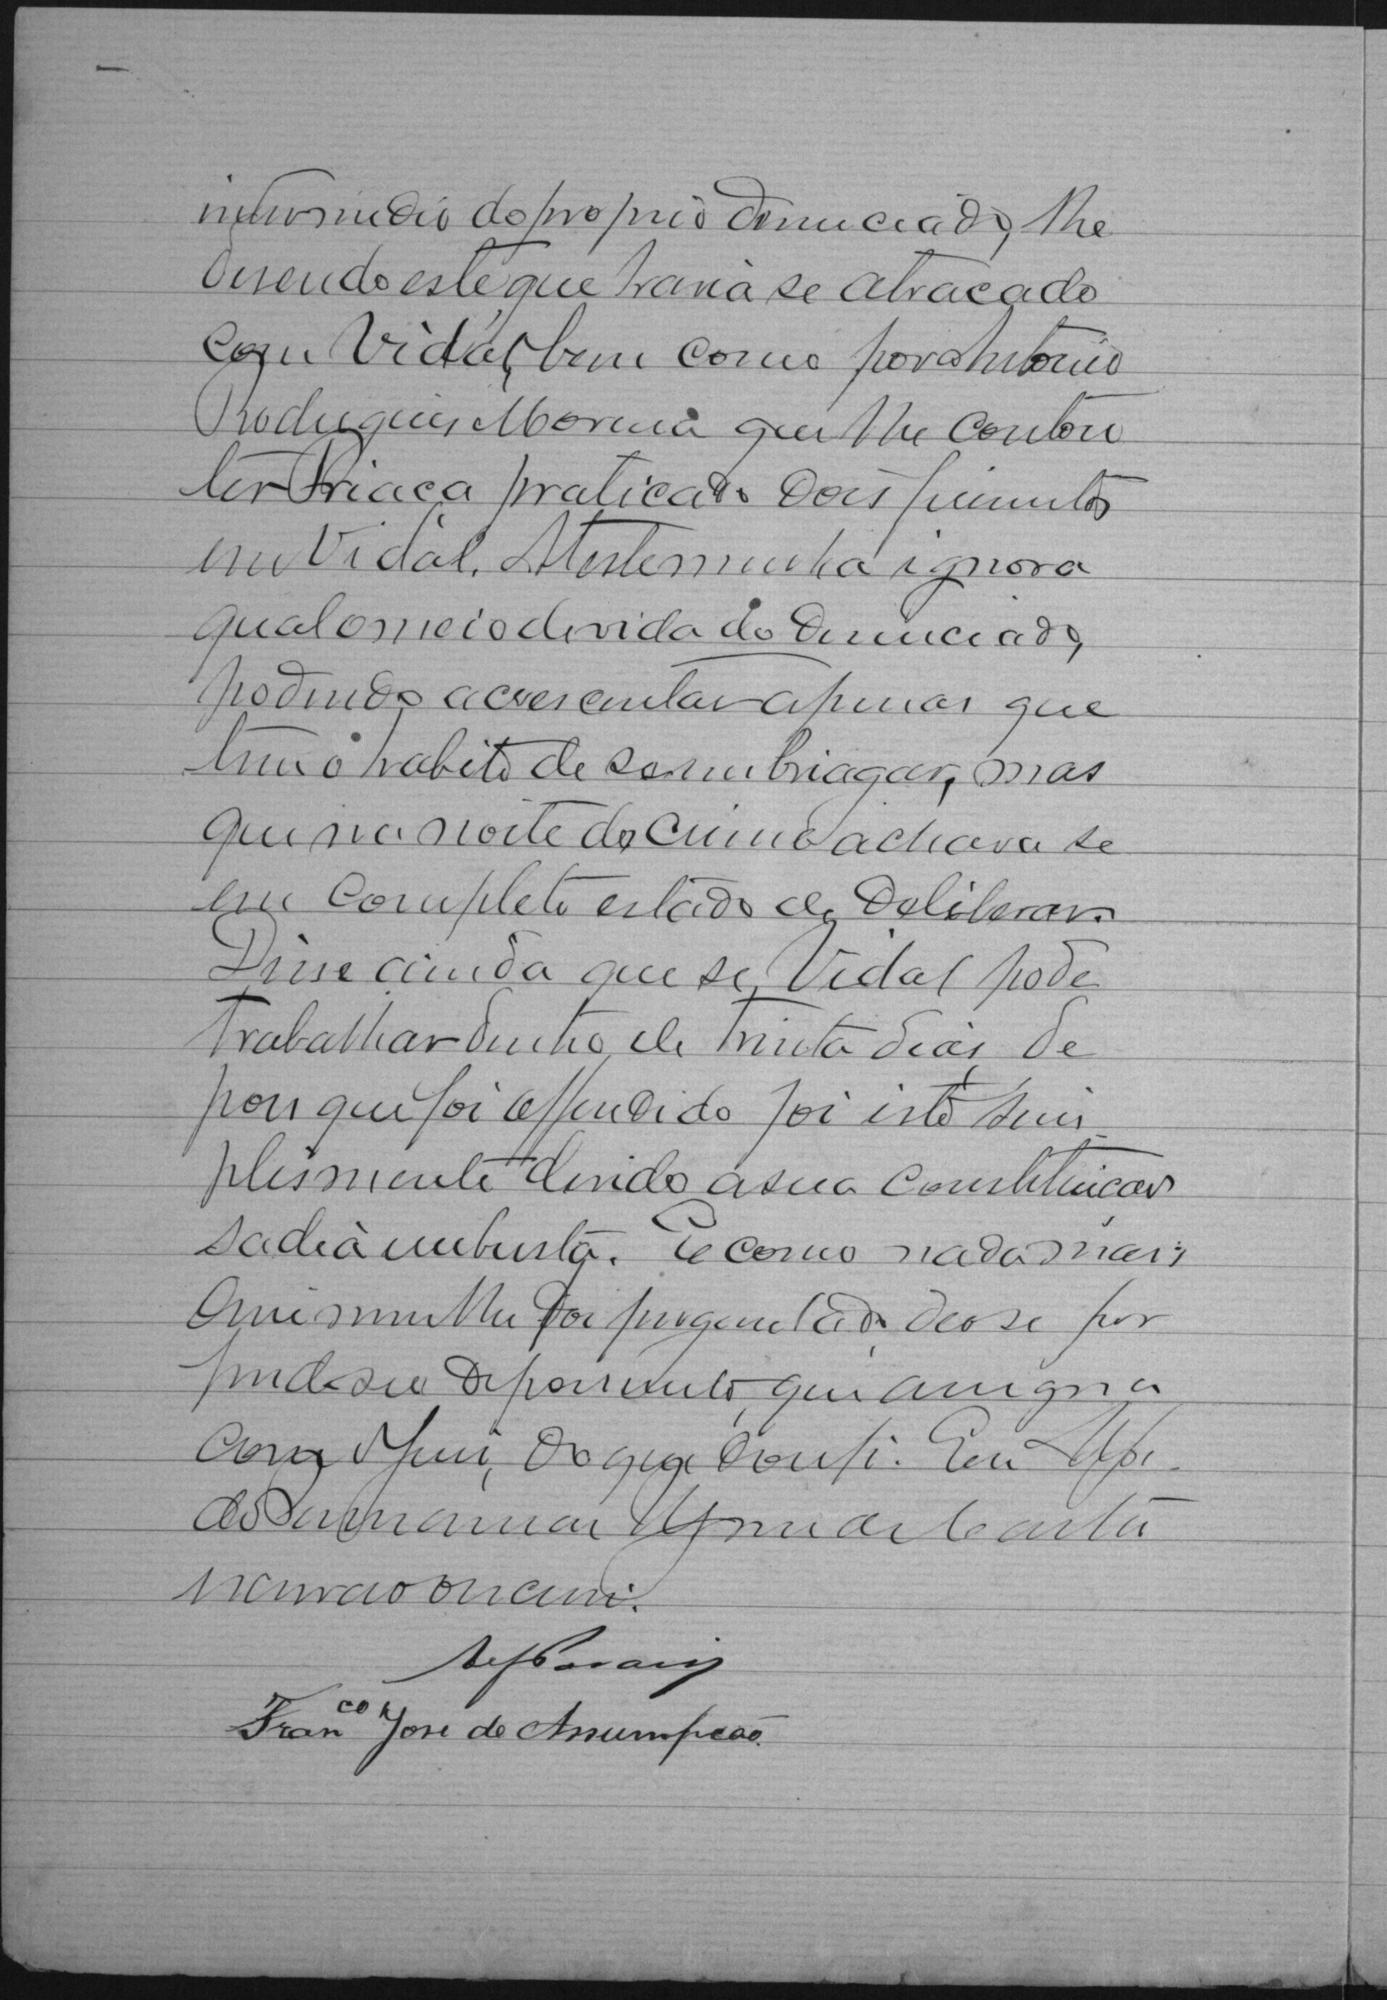 intermedio do proprio denunciado, lhe
disendo este, que havia se atracado
com Vidal, bem como por Antonio
Rodrigues Moreira que lhe contou
ter Priaca praticado dois ferimentos
em Vidal. A testemunha ignora
qual o meio de vida do denunciado,
podendo acrescentar apenas que
tem o habito de se embriagar, mas
que na noite do crime achava se
em completo estado de deliberar.
Disse ainda que se Vidal pode
trabalhar dentro de trinta dias de
pois que foi offendido foi isto sim
plesmente devido a sua constituição
sadia e robusta. E como nada mais
disse nem lhe foi perguntado deo se por
findo seo depoimento, que assigna
com o Juiz, do que dou fé. Eu
escrivão o escrevi.
Fran.co José de Assumpção.